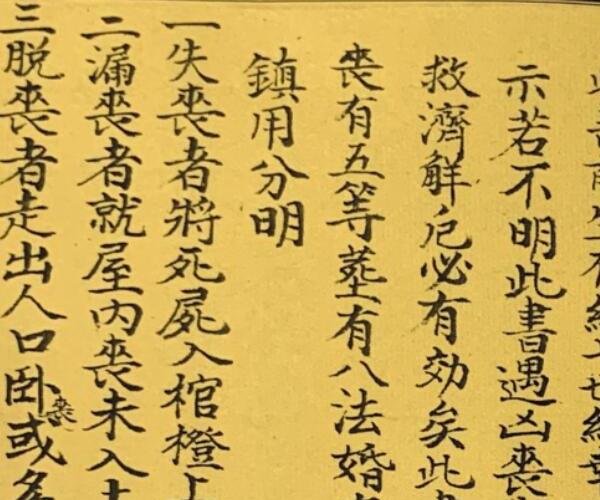 示若不明此書遇凶喪
救濟解厄必有効矣此
喪有五等塟有八法婚
鎮用分明
一失喪者將死屍入棺橙
二漏喪者就屋內喪未入
三脫喪者走出人口卧喪或多